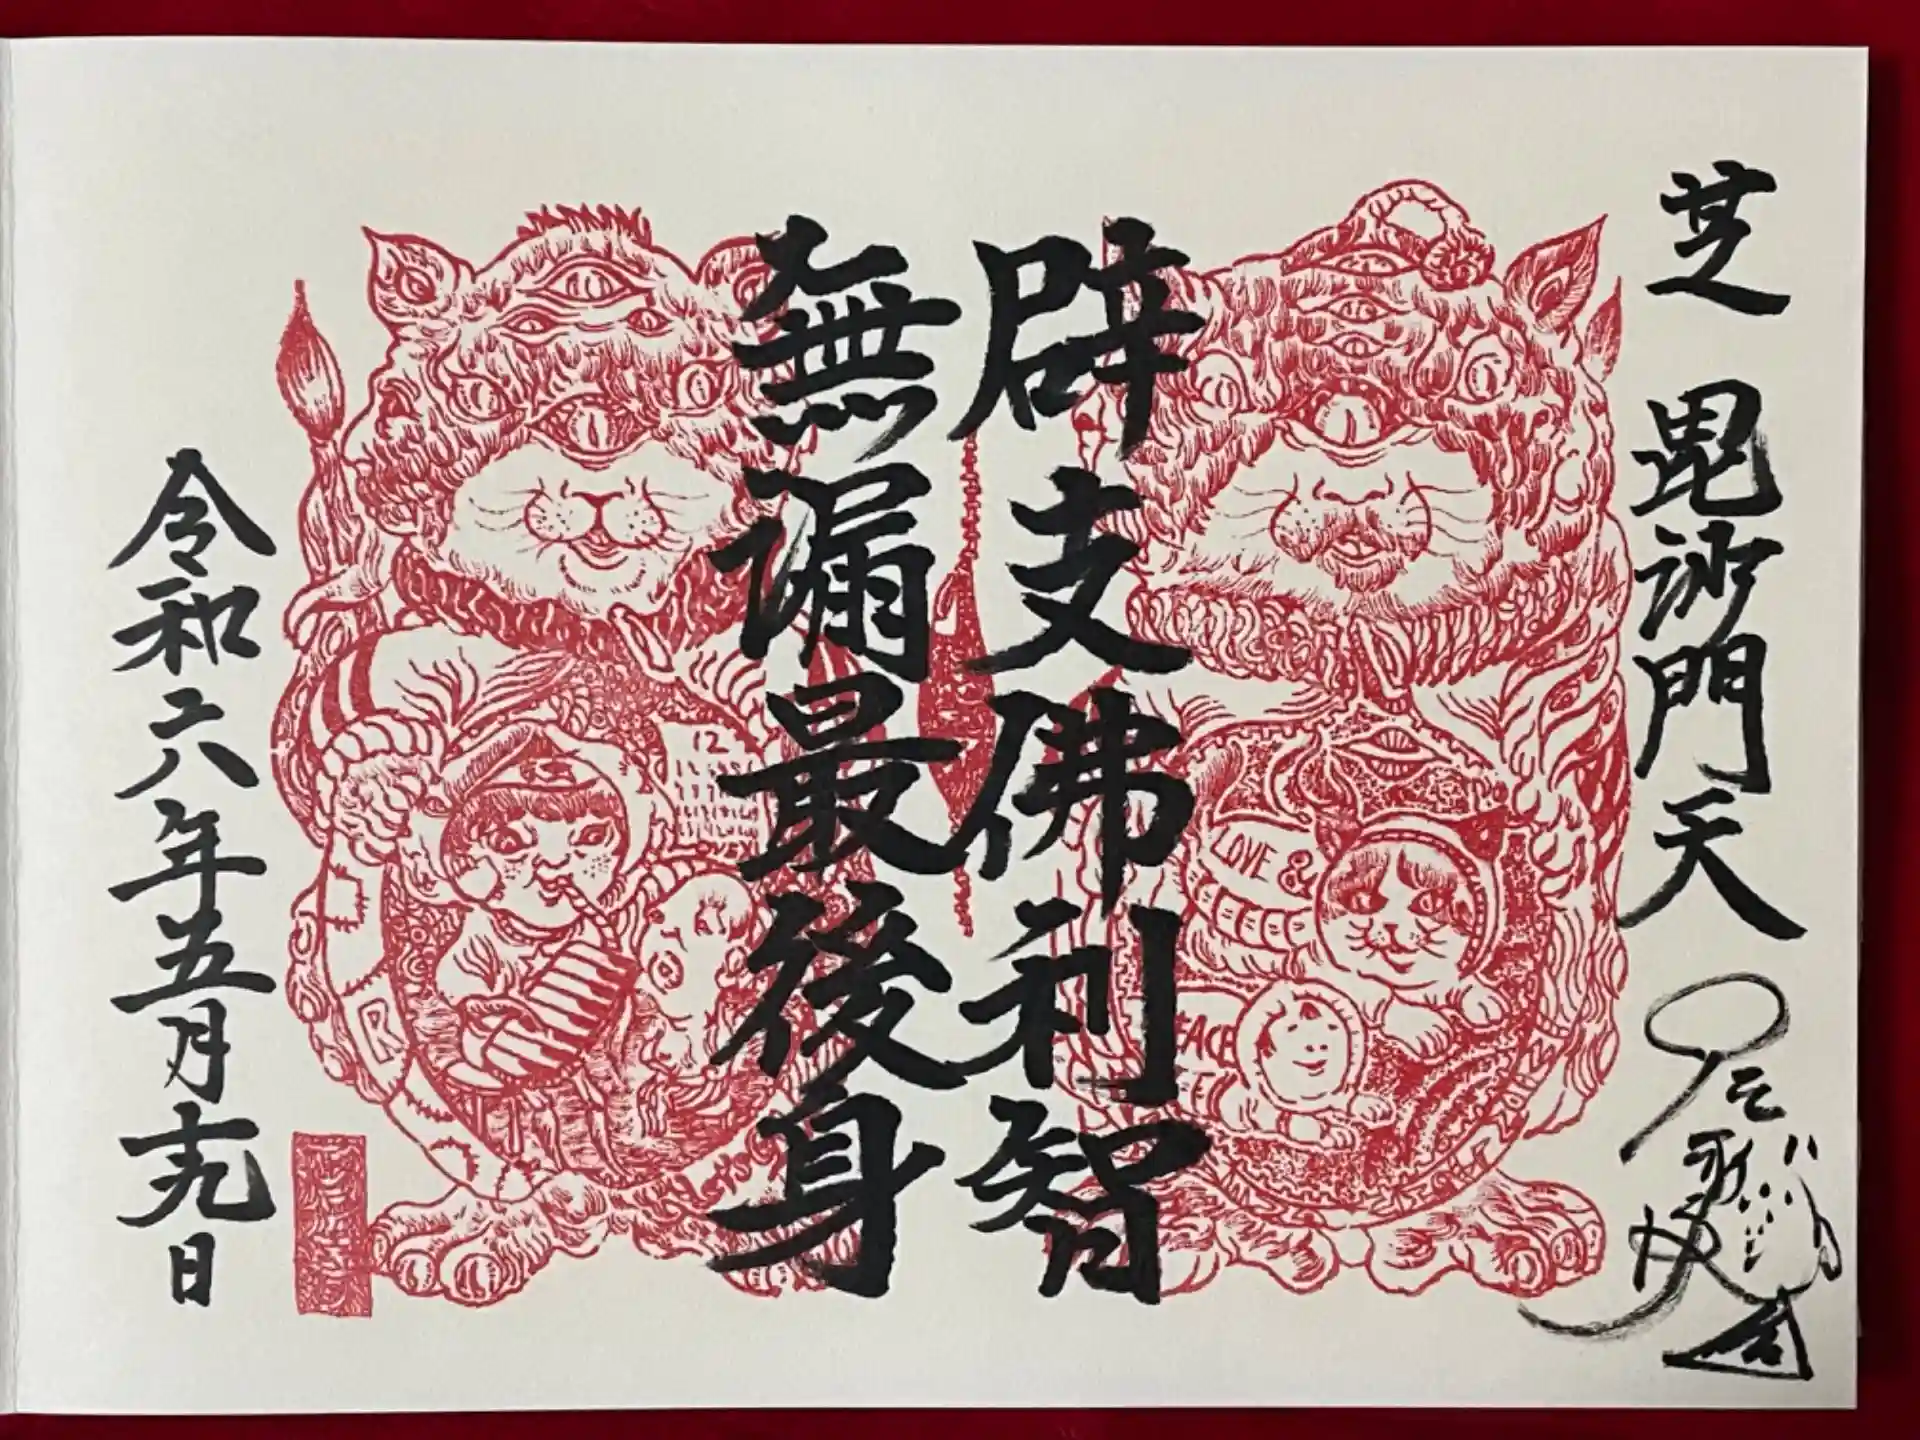 芝 毘沙門天
辟支佛利智
無漏最後身
令和六年五月十九日
12
LOVE &
R